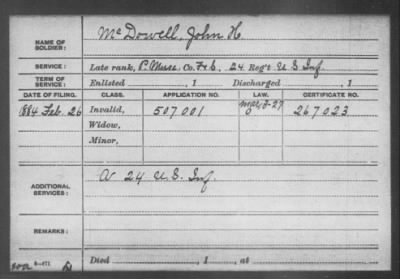 NAME OF SOLDIER: McDowell, John H.
SERVICE: Late rank, P. Muse. Co. F & G, 24 Reg't U S Inf.
TERM OF SERVICE: Enlisted , 1 Discharged , 1
DATE OF FILING. CLASS. APPLICATION NO. LAW. CERTIFICATE NO.
1884 Feb. 26 Invalid, 507001 267023
Widow,
Minor,
ADDITIONAL SERVICES: 24 U.S. Inf.
REMARKS:
Died , 1 , at